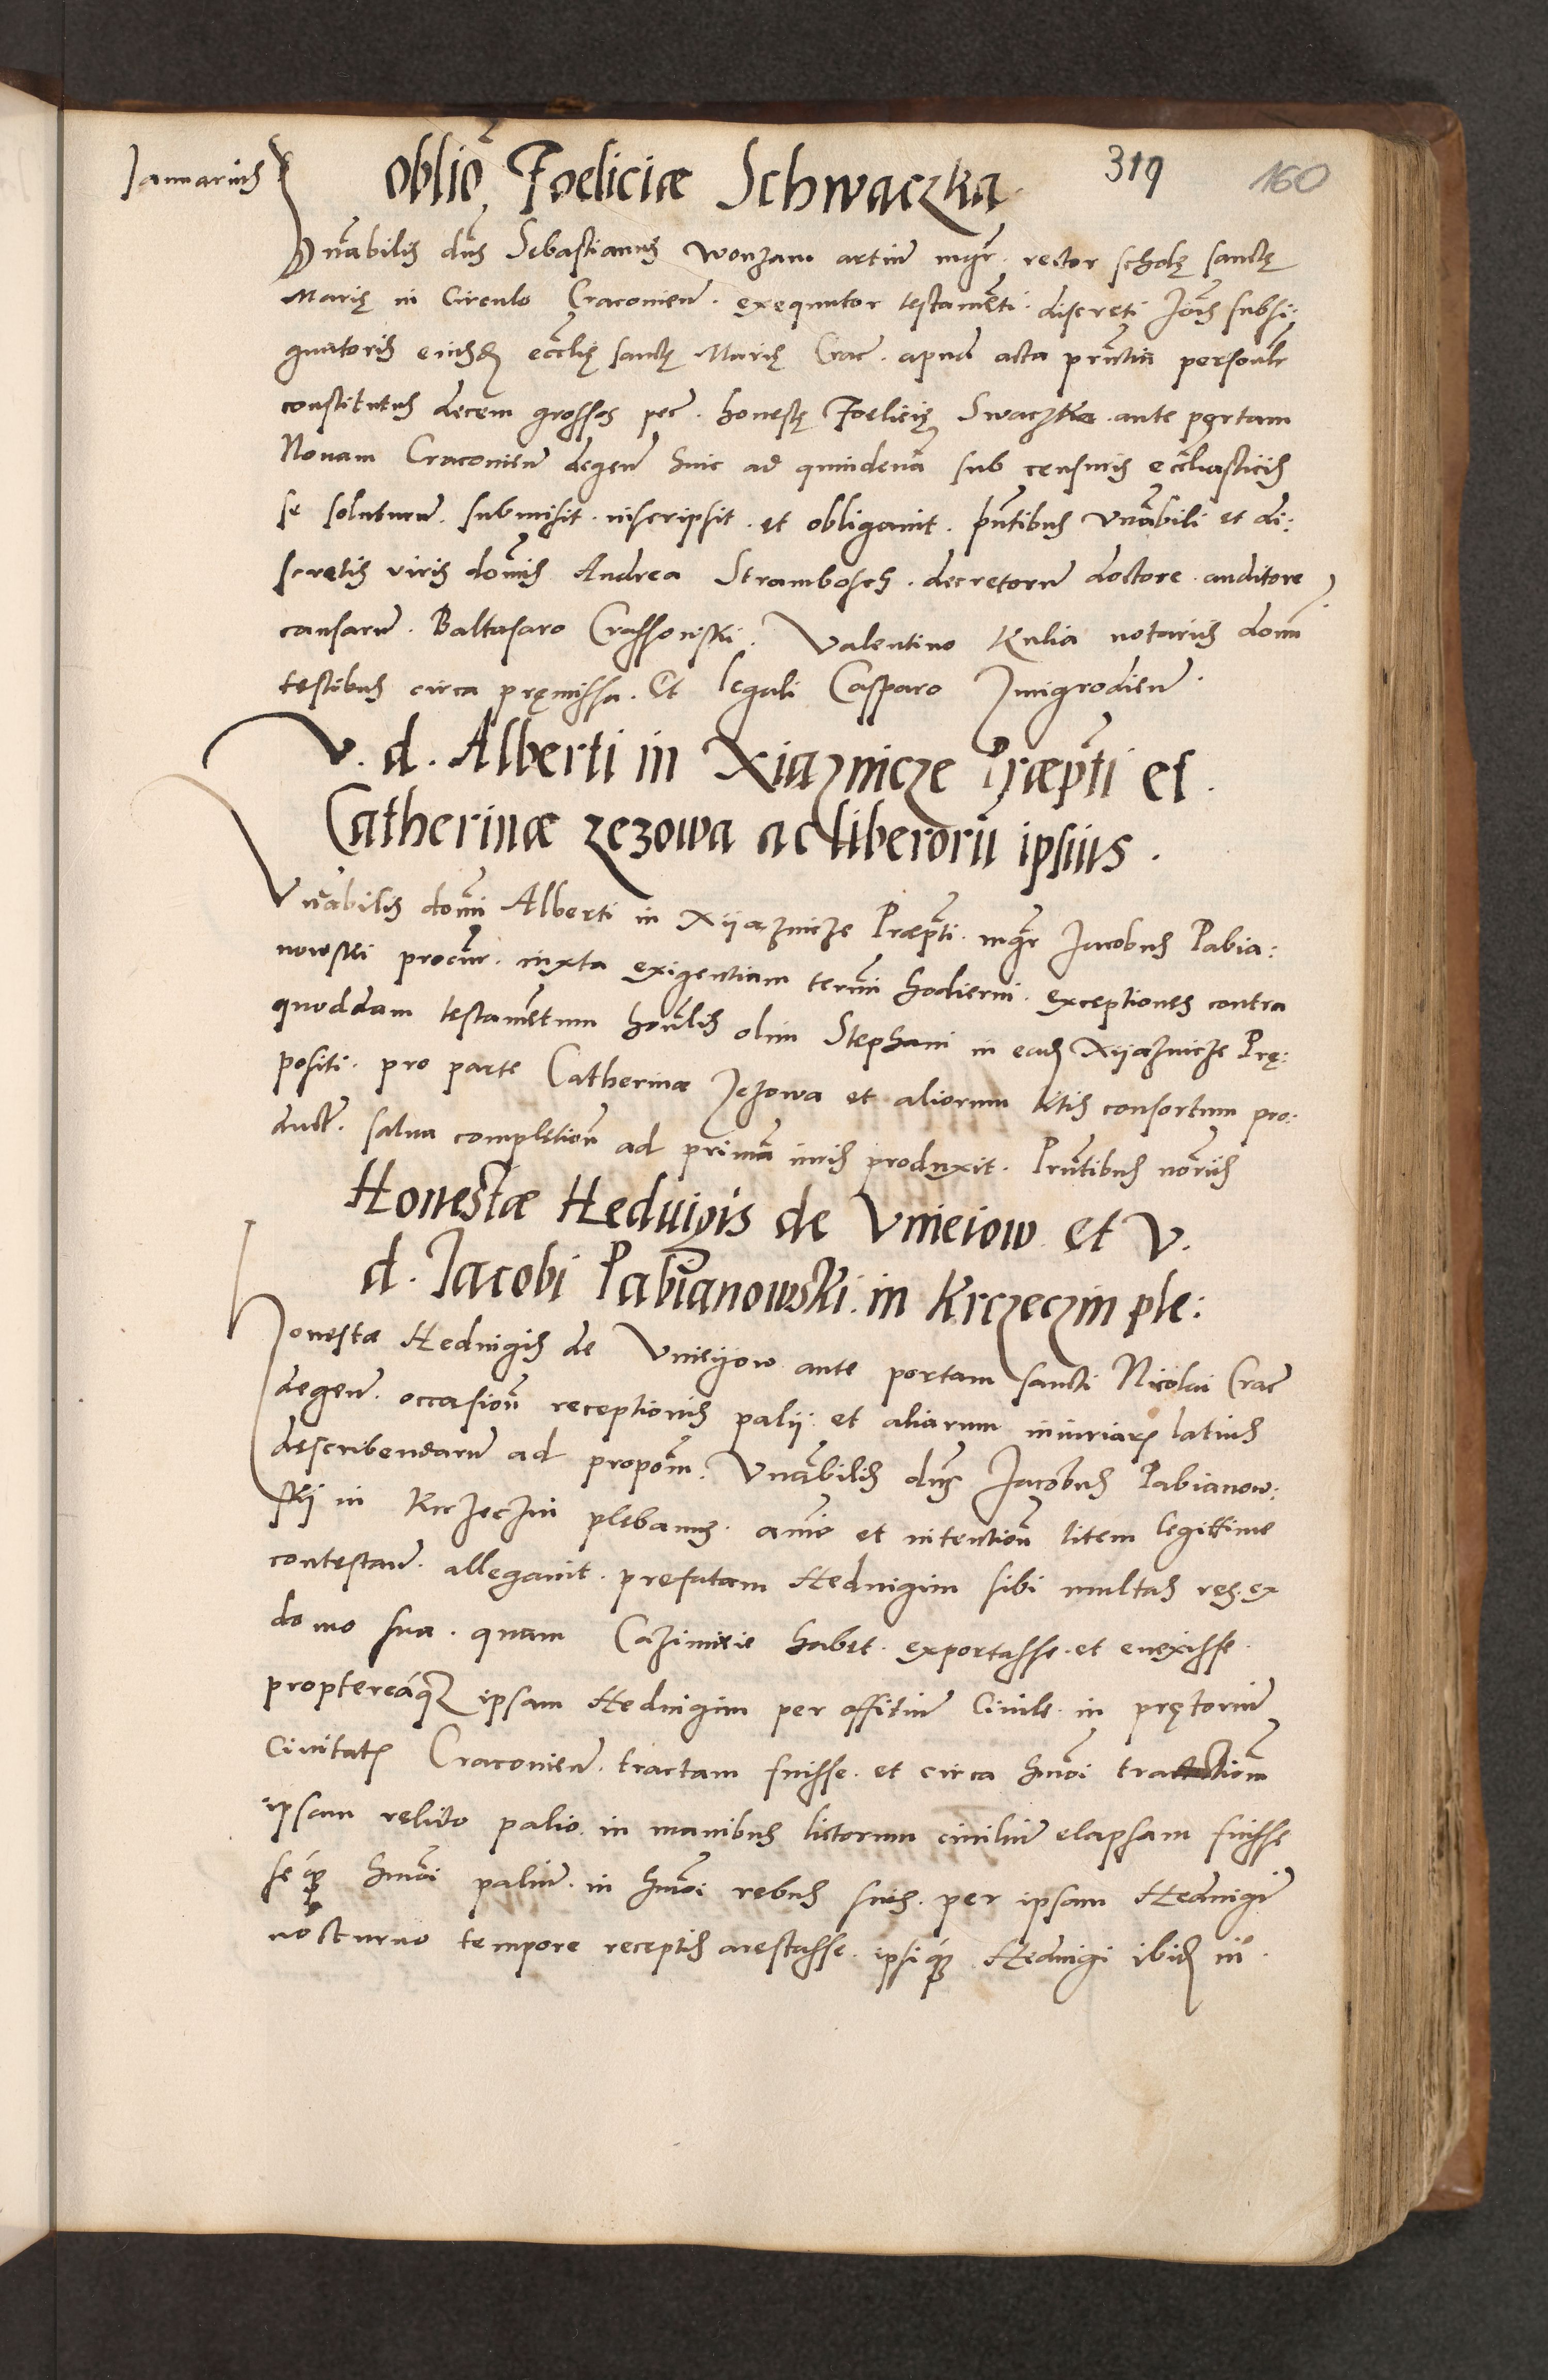 Januarius
319
160
Obliō Foeliciæ Schwaczka
Vnābilis dns Sebastianus Wonzam artiū mgr. rector scholę sanctę
Marię in Circulo Cracovieñ. exequutor testamēti discreti Joīs subsi:
gnatoris eiusdē ecclię sanctę Marię Crac. apud acta pn̄tia personlr
constitutus decem grossos pec. honestę Foelicię Swaczka ante portam
Novam Cracovieñ degeñ hinc ad quindenā sub censuris eccliasticis
se soluturū. submisit. inscripsit. et obligavit. pn̄tibus vnābili et di:
scretis viris domīs Andrea Strambosch. decretorū doctore. auditore
causarū. Baltasaro Crassowski. Valentino Kulia notariis domī
testibus circa pręmissa. Et legali Casparo Zmigrodieñ.
V. d. Alberti in Xiaznicze Præpti et
Catherinæ zezowa ac liberorū ipsius.
Vnābilis domī Alberti in Xijaznicze Præpti. mgr Jacobus Pabia:
nowski procur. iuxta exigentiam termi hodierni. exceptiones contra
quoddam testamētum honlis olim Stephani in eadē Xijaznicze Prę:
positi. pro parte Catherinæ Jezowa et aliorum litis consortum pro:
duct. salva completioñ ad primā iuris produxit. Pn̄tibus noriis
Honestæ Heduigis de Vnieiow et V.
d. Jacobi Pabianowski. in Krczeczin ple:
Honestæ Heduigis de Vnieyow ante portam sancti Nicolai Crac
degeñ. occasioñ receptionis palii et aliarum iniuriarum latius
describendarū ad propoīm. Vnābilis dns Jacobus Pabianow:
skij in Krczeczin plebanus. animo et intentioñ litem legittime
contestañ. allegavit. prefatam Heduigim sibi multas res. ex
domo sua. quam Cazimirie habet. exportasse. et evexisse.
proptereáq₃ ipsam Heduigim per offitiū Civile in prętoriū
Civitatis Cracovieñ. tractam fuisse. et circa hmōi tractiom
ipsam relicto palio. in manibus lictorum civiliū elapsam fuisse
séq₃ hmōi paliū. in hmōi rebus suis. per ipsam Heduigī
nocturno tempore receptis arestasse. ipsiq₃ Heduigi ibidē in